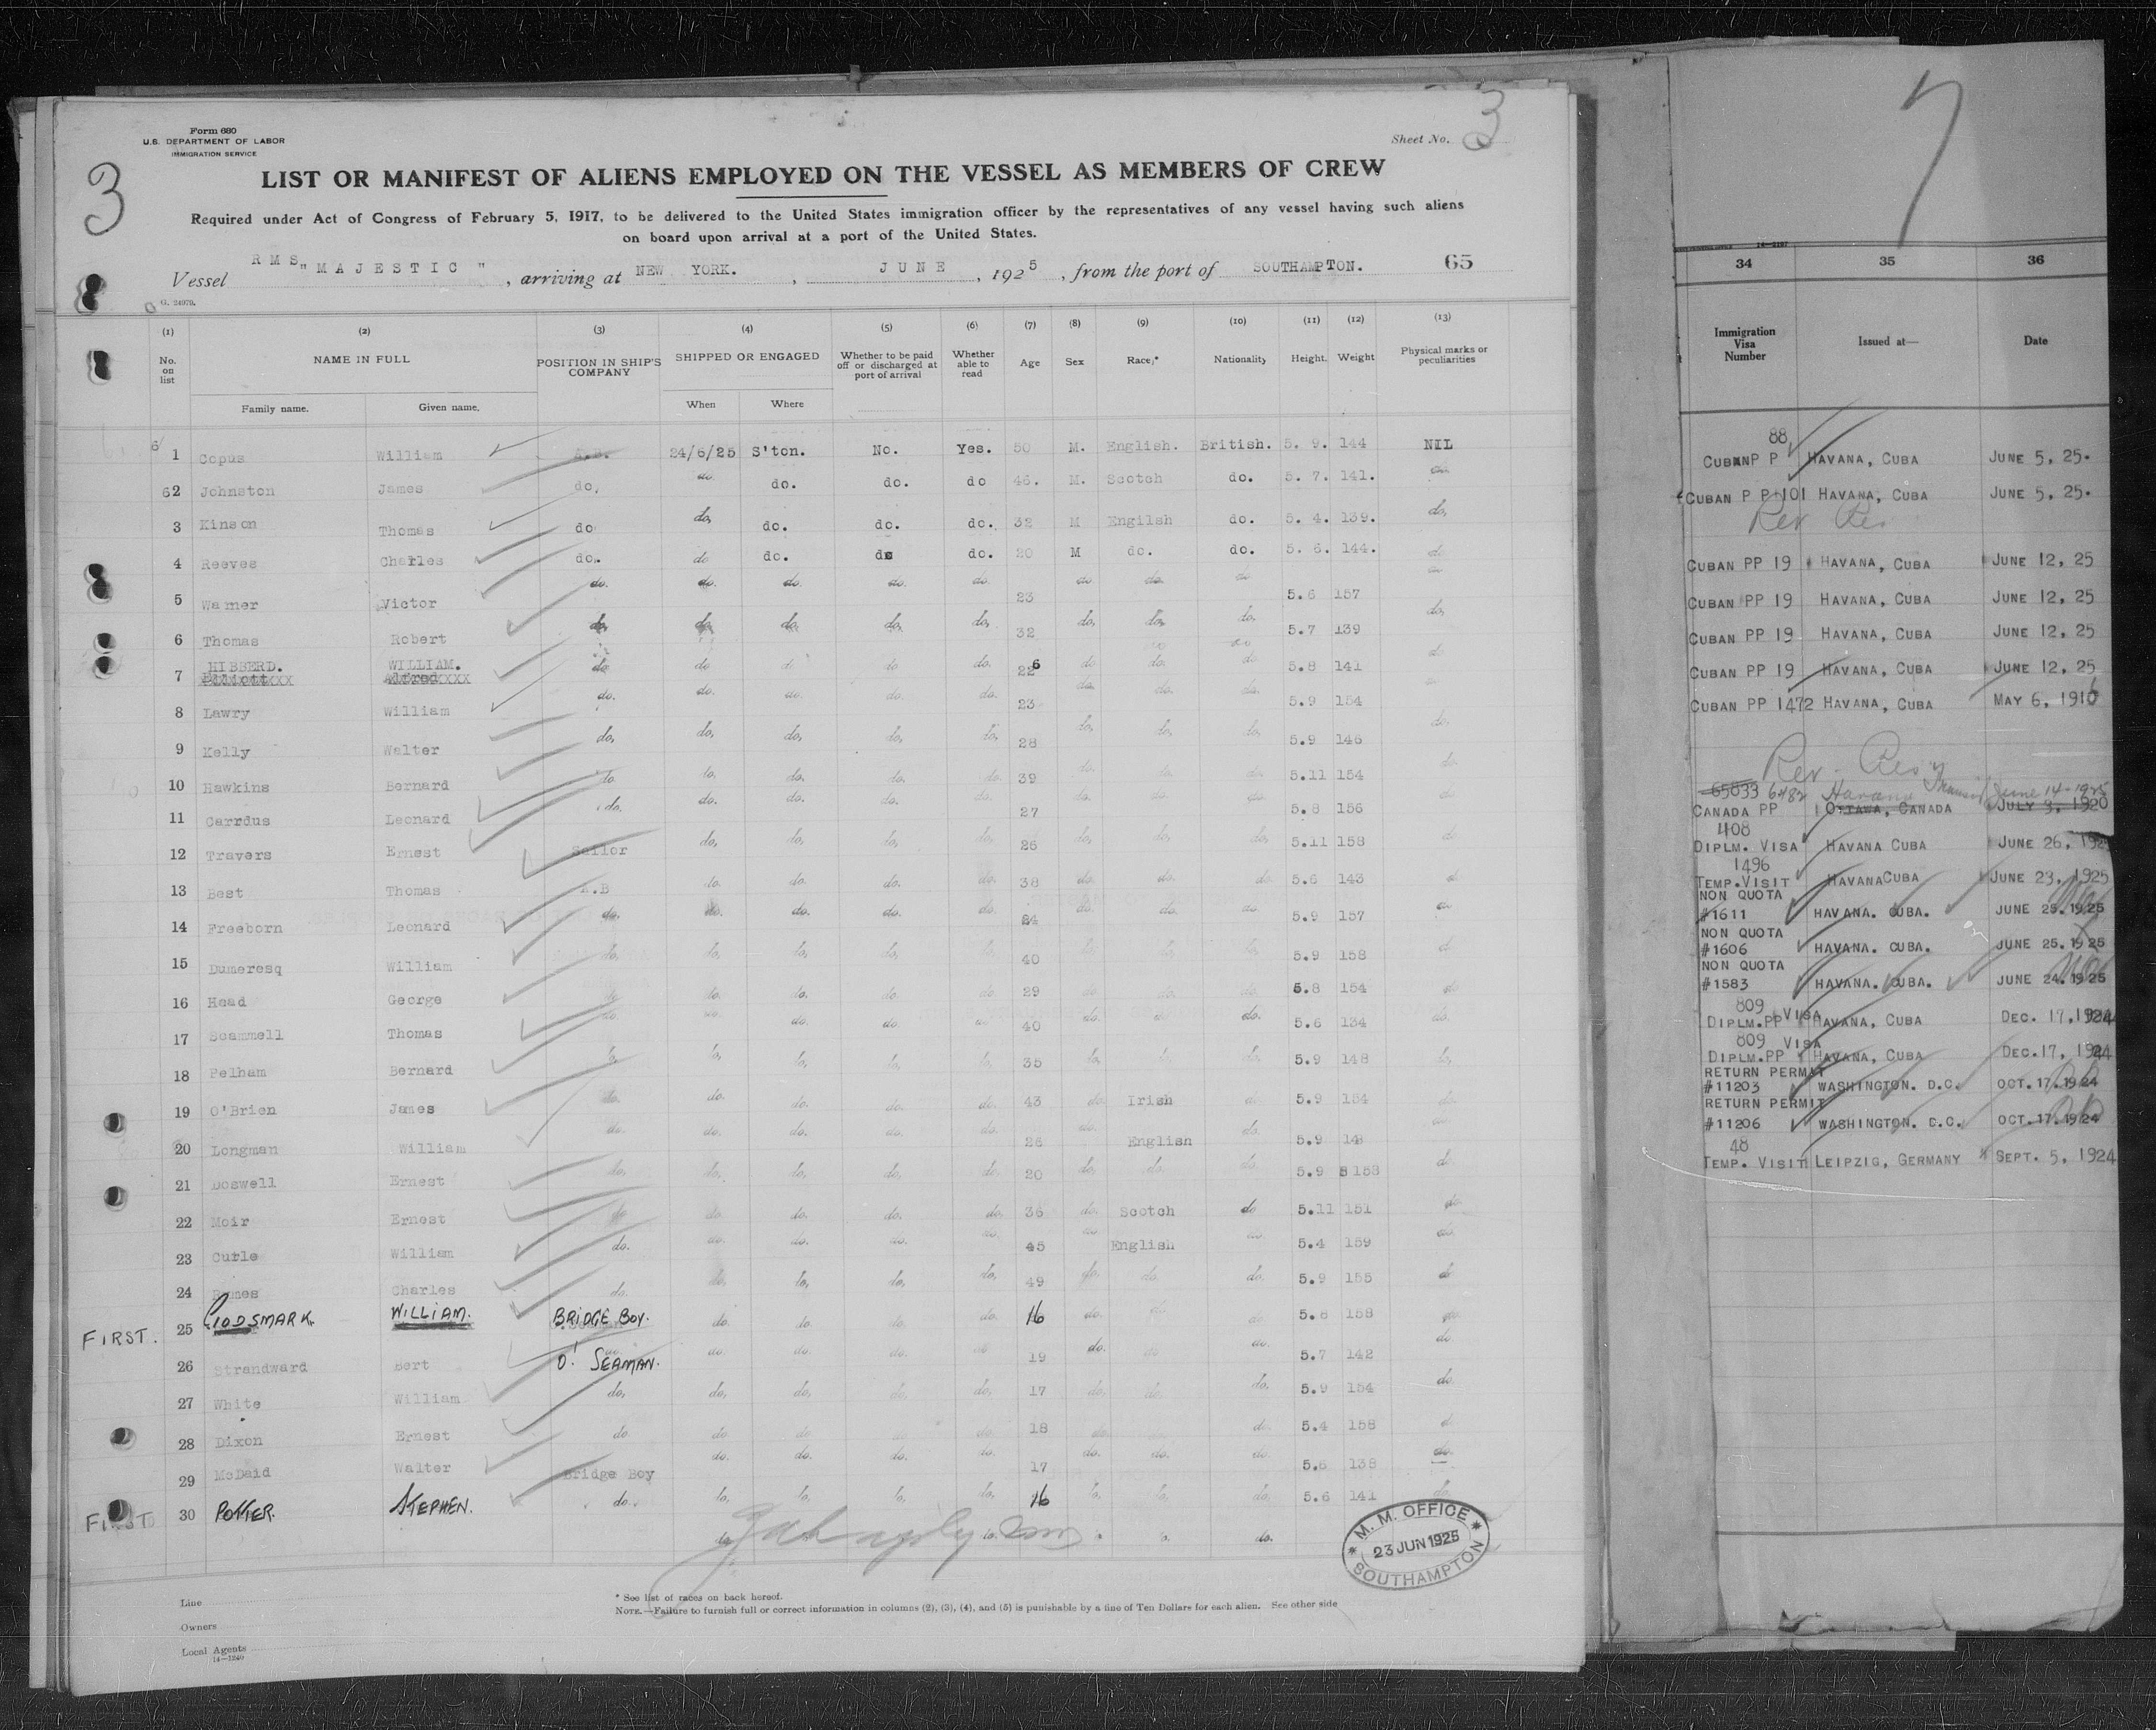 Form 680
U.S. DEPARTMENT OF LABOR
IMMIGRATION SERVICE
Sheet No. 3
3
LIST OR MANIFEST OF ALIENS EMPLOYED ON THE VESSEL AS MEMBERS OF CREW
Required under Act of Congress of February 5, 1917, to be delivered to the United States immigration officer by the representatives of any vessel having such aliens
on board upon arrival at a port of the United States.
Vessel RMS "MAJESTIC", arriving at NEW YORK., JUNE, 1925, from the port of SOUTHAMPTON. 65
G. 24070.
(1) (2) (3) (4) (5) (6) (7) (8) (9) (10) (11) (12) (13)
No. on list NAME IN FULL POSITION IN SHIP'S COMPANY SHIPPED OR ENGAGED Whether to be paid off or discharged at port of arrival Whether able to read Age Sex Race,* Nationality Height. Weight Physical marks or peculiarities
Family name. Given name. When Where
1 Copus William A.B. 24/6/25 S'ton. No. Yes. 50 M. English. British. 5. 9. 144 NIL
62 Johnston James do. do. do. do. do 46. M. Scotch do. 5. 7. 141. do
3 Kinson Thomas do do, do. do. do. 32 M Engilsh do. 5. 4. 139. do,
4 Reeves Charles do. do do. do do. 20 M do. do. 5. 6. 144. do
5 Warner Victor do. do. do. do. do. 23 do do do 5.6 157 do
6 Thomas Robert do, do, do, do, do, 32 do, do, do, 5.7 139 do,
7 HIBBERD. WILLIAM. do do do do do. 26 do do. do 5.8 141 do
Elliott Alfred
8 Lawry William do. do. do. do. do. 23 do. do. do. 5.9 154
9 Kelly Walter do, do, do, do, do, 28 do, do, do, 5.9 146 do,
10 Hawkins Bernard do do. do. do. do. 39 do. do. do. 5.11 154 do.
11 Carrdus Leonard do. do. do. do. do. 27 do. do. do. 5.8 156
12 Travers Ernest Sailor do, do, do, do, 26 do, do, do, 5.11 158 do
13 Best Thomas A.B do. do. do. do. 38 do. do. do. 5.6 143 do
14 Freeborn Leonard do. do. do. do. do. 24 do. do. do. 5.9 157 do
15 Dumeresq William do, do, do, do, do, 40 do, do, do, 5.9 158 do
16 Head George do do. do. do. do. 29 do. do. do. 5.8 154 do
17 Scammell Thomas do. do. do. do. do 40 do. do. do. 5.6 134 do.
18 Pelham Bernard do, do, do, do, do, 35 do, do, do, 5.9 148 do,
19 O'Brien James do. do. do. do. do. 43 do. Irish do 5.9 154 do
20 Longman William do. do. do. do. do. 26 do. English do. 5.9
21 Doswell Ernest do, do, do, do, do, 20 do, do. do. 5.9 158 do
22 Moir Ernest do do. do. do. do. 36 do. Scotch do 5.11 151 do.
23 Curle William do. do. do. do. do. 45 do English do. 5.4 159 do.
24 Charles do. do, do, do, do, 49 do. do. do. 5.9 155 do
FIRST. 25 WILLIAM. BRIDGE BOY. do. do. do. do. 16 do. do. do 5.8 158 do
26 Strandward Bert O' SEAMAN. do. do. do. do 19 do. do do. 5.7 142 do
27 White William do, do, do, do, do, 17 do, do, do, 5.9 154 do.
28 Dixon Ernest do do. do do do. 18 do. do. 5.4 158 d
29 McDaid Walter Bridge Boy do. do. do. do. 17 do. do. do. 5.6 138 do.
FIRST 30 POTTER. STEPHEN. do. do, do, do, do, 16 do, do, do, 5.6 141 do.
M. M. OFFICE
23 JUN 1925
SOUTHAMPTON
Line
Owners
Local Agents
14—1240
* See list of races on back hereof.
NOTE.—Failure to furnish full or correct information in columns (2), (3), (4), and (5) is punishable by a fine of Ten Dollars for each alien. See other side
7
34 35 36
Immigration Visa Number Issued at— Date
88
CUBAN P P HAVANA, CUBA JUNE 5, 25.
CUBAN P P 101 HAVANA, CUBA JUNE 5, 25.
Rev Res
CUBAN PP 19 HAVANA, CUBA JUNE 12, 25
CUBAN PP 19 HAVANA, CUBA JUNE 12, 25
CUBAN PP 19 HAVANA, CUBA JUNE 12, 25
CUBAN PP 19 HAVANA, CUBA JUNE 12, 25
CUBAN PP 1472 HAVANA, CUBA MAY 6, 1916
Rev. Res
65833 6482 Havana June 14-1925
CANADA PP OTTAWA, CANADA JULY 3, 1920
408
DIPLM. VISA HAVANA CUBA JUNE 26, 1925
1496
TEMP. VISIT HAVANA CUBA JUNE 23, 1925
NON QUOTA
#1611 HAVANA. CUBA. JUNE 25. 1925
NON QUOTA
#1606 HAVANA. CUBA. JUNE 25. 1925
NON QUOTA
#1583 HAVANA. CUBA. JUNE 24. 1925
809
DIPLM.PP VISA HAVANA, CUBA DEC. 17, 1924
809 VISA
DIPLM.PP HAVANA, CUBA DEC. 17, 1924
RETURN PERMIT
#11203 WASHINGTON. D.C. OCT. 17. 1924
RETURN PERMIT
#11206 WASHINGTON. D.C. OCT. 17. 1924
48
TEMP. VISIT LEIPZIG, GERMANY SEPT. 5, 1924